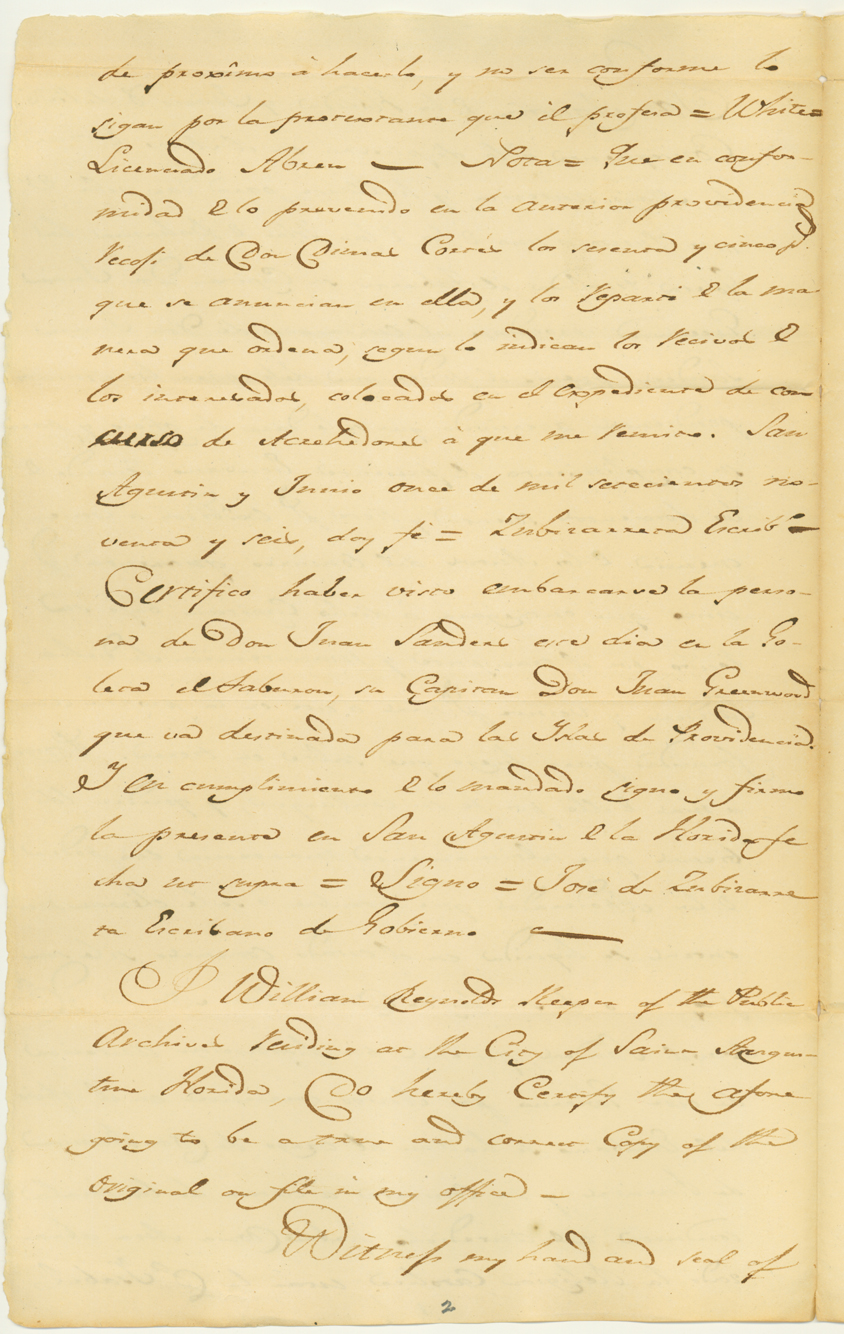 de proximo à hacerlo, y no ser conforme lo
sigan por la protextante que él profesa = White =
Licenciado Abreu — Nota = Que en confor-
midad d lo prevenido en la anterior providencia
recosi de Don Dimas Cortés los sesenta y cinco p.
que se anuncian en ella, y los reparti d la ma
nera que ordena, segun lo indican los recivos d
los interesados, colocados en el expediente de con
curso de Acrehedores à que me remito. San
Agustin y Junio once de mil setecientos no-
venta y seis, doy fé = Zubizarreta Escrib.º =
Certifico haber visto embarcarse la perso-
na de Don Juan Sanders este dia en la Go-
leta el Taburon, su Capitan Don Juan Greenwood
que va destinada para las Yslas de Providencia.
Y en cumplimiento d lo mandado signo y firmo
la presente en San Agustin d la Florida fe
cha ut supra = Signo = José de Zubizarre
ta Escribano de Gobierno —
I William Reynolds Keeper of the Public
Archives residing at the City of Saint Augus-
tine Florida, Do hereby Certify the afore
going to be a true and correct Copy of the
Original on file in my office —
Witness my hand and seal of
2